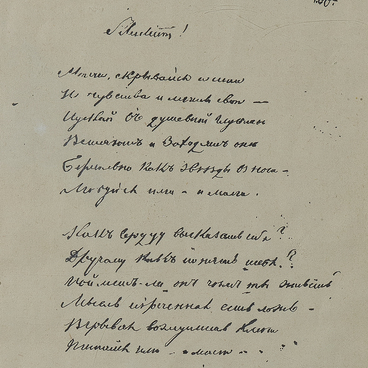 Silentium!
Молчи, скрывайся и таи
И чувства и мечты свои —
Пускай въ душевной глубинѣ
Встаютъ и заходятъ онѣ
Безмолвно какъ звѣзды въ ночи —
Любуйся ими — и молчи.
Какъ сердцу высказать себя?
Другому какъ понять тебя?
Пойметъ-ли онъ чѣмъ ты живешь
Мысль изреченная есть ложь —
Взрывая возмутишь ключи
Питайся ими — и молчи —